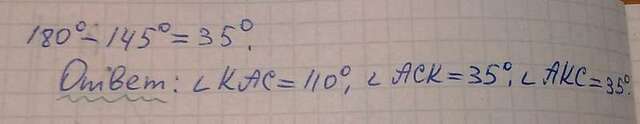 180° - 145° = 35°.
Ответ: ∠ KAC = 110°, ∠ ACK = 35°, ∠ AKC = 35°.